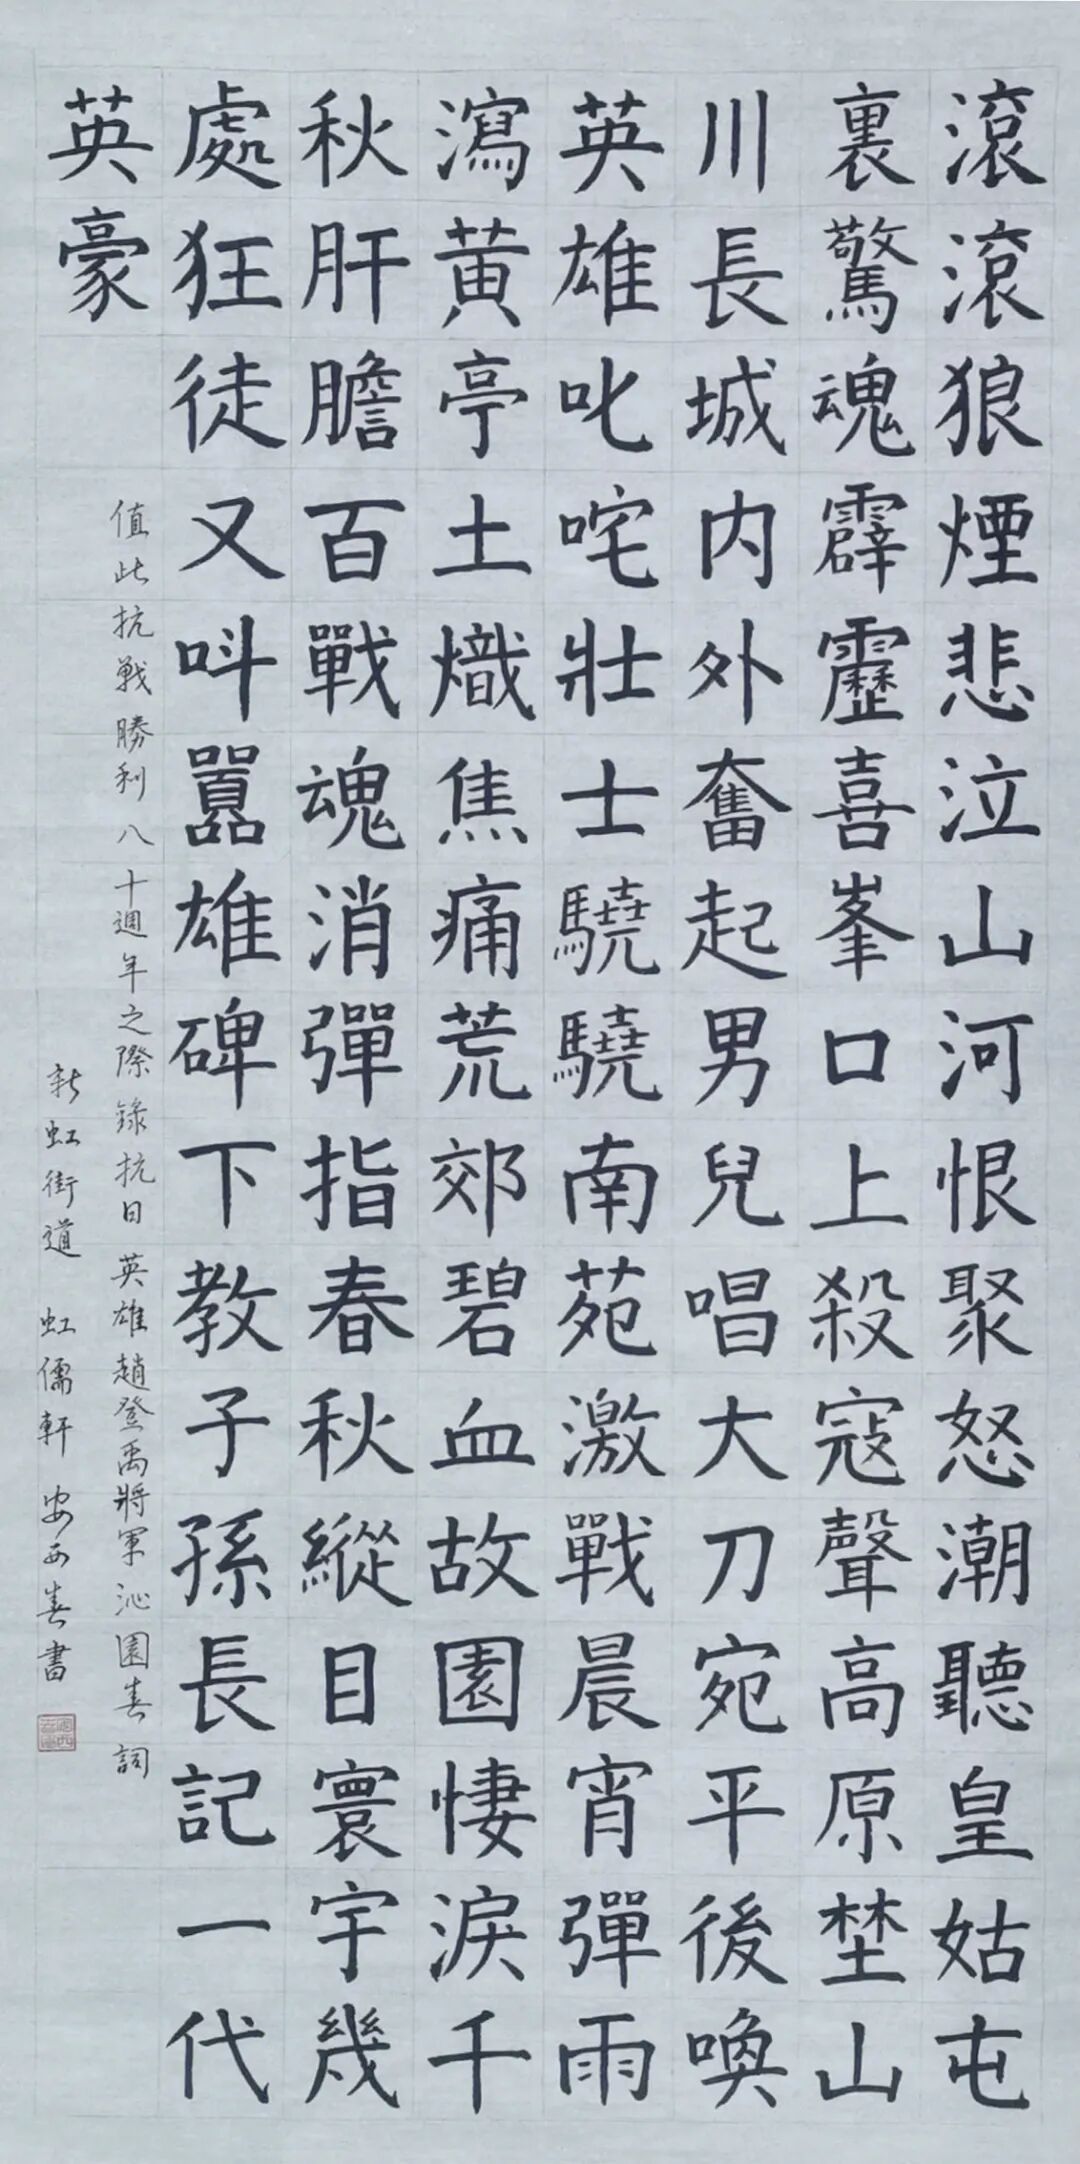 滾滾狼煙悲泣山河恨聚怒潮聽皇姑屯
裏驚魂霹靂喜峯口上殺寇聲高原埜山
川長城內外奮起男兒唱大刀宛平後喚
英雄叱咤壯士驍驍南苑激戰晨宵彈雨
瀉黄亭土熾焦痛荒郊碧血故園悽淚千
秋肝膽百戰魂消彈指春秋縱目寰宇幾
處狂徒又呌囂雄碑下教子孫長記一代
英豪
值此抗戰勝利八十週年之際錄抗日英雄趙登禹將軍沁園春詞
新虹街道 虹儒軒 安西春書